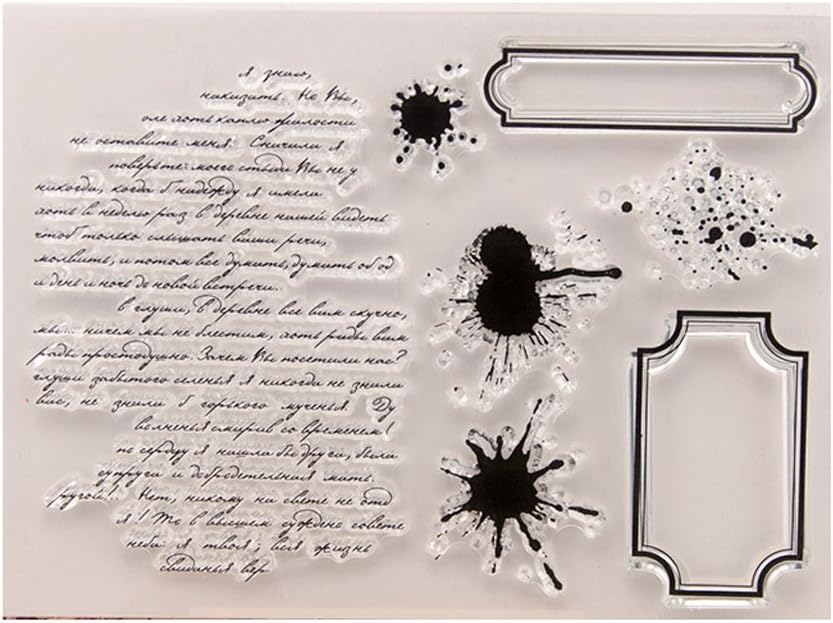 я знаю,
накизать. Но Вы,
оле хоть каплю жалости
не оставите меня. Сначили я
поверьте: моего стыда Вы не у
никогди, когда б надежду я имели
хоть в неделю раз в деревне нашей видеть
чтоб только слышать ваши речи,
молвить, и потом все думить, думить об од
и день и ночь до новой встречи.
в глуши, в деревне все вим скучно,
мы... ничем мы не блестим, хоть рады вим
рады простодушно. Зачем Вы посетили нас?
глуши забытого селенья я никогди не знили
вис, не знили б горького мученья. Ду
волненья смирив со временем!
по сердцу я нашли бы други, были
супруги и добродетельния мать.
Другой!.. Нет, никому ни свете не отд
я! То в вышем суждено совете
неби: я твоя; вся жизнь
свиданья вер